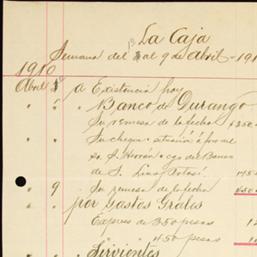 La Caja
Semana del 3 al 9 de Abril - 191
1910
Abril 3 a Existencia hoy
" " " Banco de Durango
Su remesa de la fecha $250
Su cheque situación á fme
de J. a/c del Banco
de S. Luis Potosí 175
" 9 Su remesa de la fecha $50
" " por Gastos Grales
Expres de 350 pesos 1
" " 450 pesos 1
" " Sirvientes